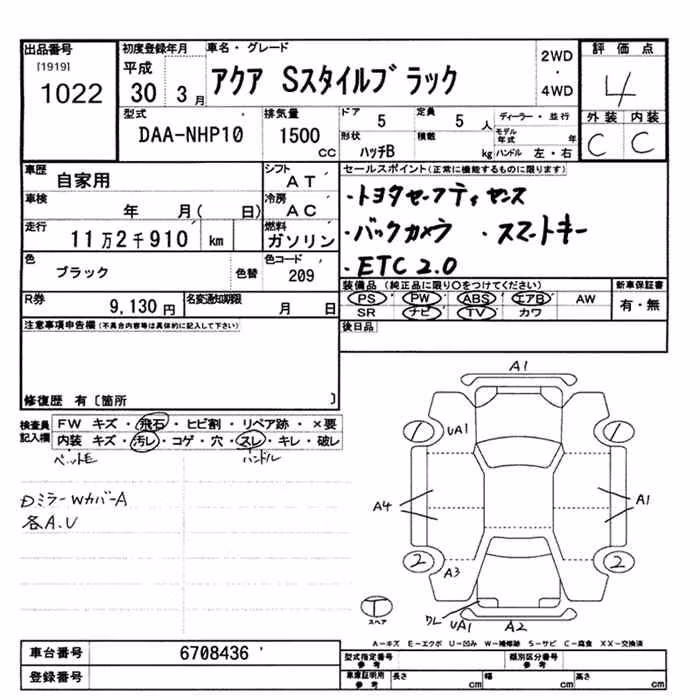 出品番号
[1919]
1022
初度登録年月
平成
30 3月
車名・グレード
アクア Sスタイルブラック
2WD
・
4WD
評価点
4
外装 内装
C C
型式
DAA-NHP10
排気量
1500
CC
ドア
5
定員
5 人
形状
ハッチB
積載
kg
ディーラー・並行
モデル年式 年
ハンドル 左・右
車歴
自家用
シフト
AT
車検
年 月( 日)
冷房
AC
走行
11万2千910 km
燃料
ガソリン
色
ブラック
色替
色コード
209
R券
9,130円
名変通知期限
月 日
セールスポイント(正常に機能するものに限ります)
・トヨタセーフティセンス
・バックカメラ ・スマートキー
・ETC2.0
装備品(純正品に限り○をつけてください)
PS PW ABS エアB AW
SR ナビ TV カワ
新車保証書
有・無
後日品
注意事項申告欄(不具合内容等は具体的に記入して下さい)
修復歴 有〔箇所 〕
検査員記入欄
FW キズ・飛石・ヒビ割・リペア跡・×要
内装 キズ・汚レ・コゲ・穴・スレ・キレ・破レ
ペットモ ハンドル
DミラーWカバーA
各A.U
A1
1 UA1 1
A4 A1
2 A3 2
ワレ UA1 A2
T
スペア
A―キズ E―エクボ U―凹み W―補修跡 S―サビ C―腐食 XX―交換済
車台番号
6708436
登録番号
型式指定番号
参考
類別区分番号
参考
車庫証明用
参考
長さ cm 幅 cm 高さ cm